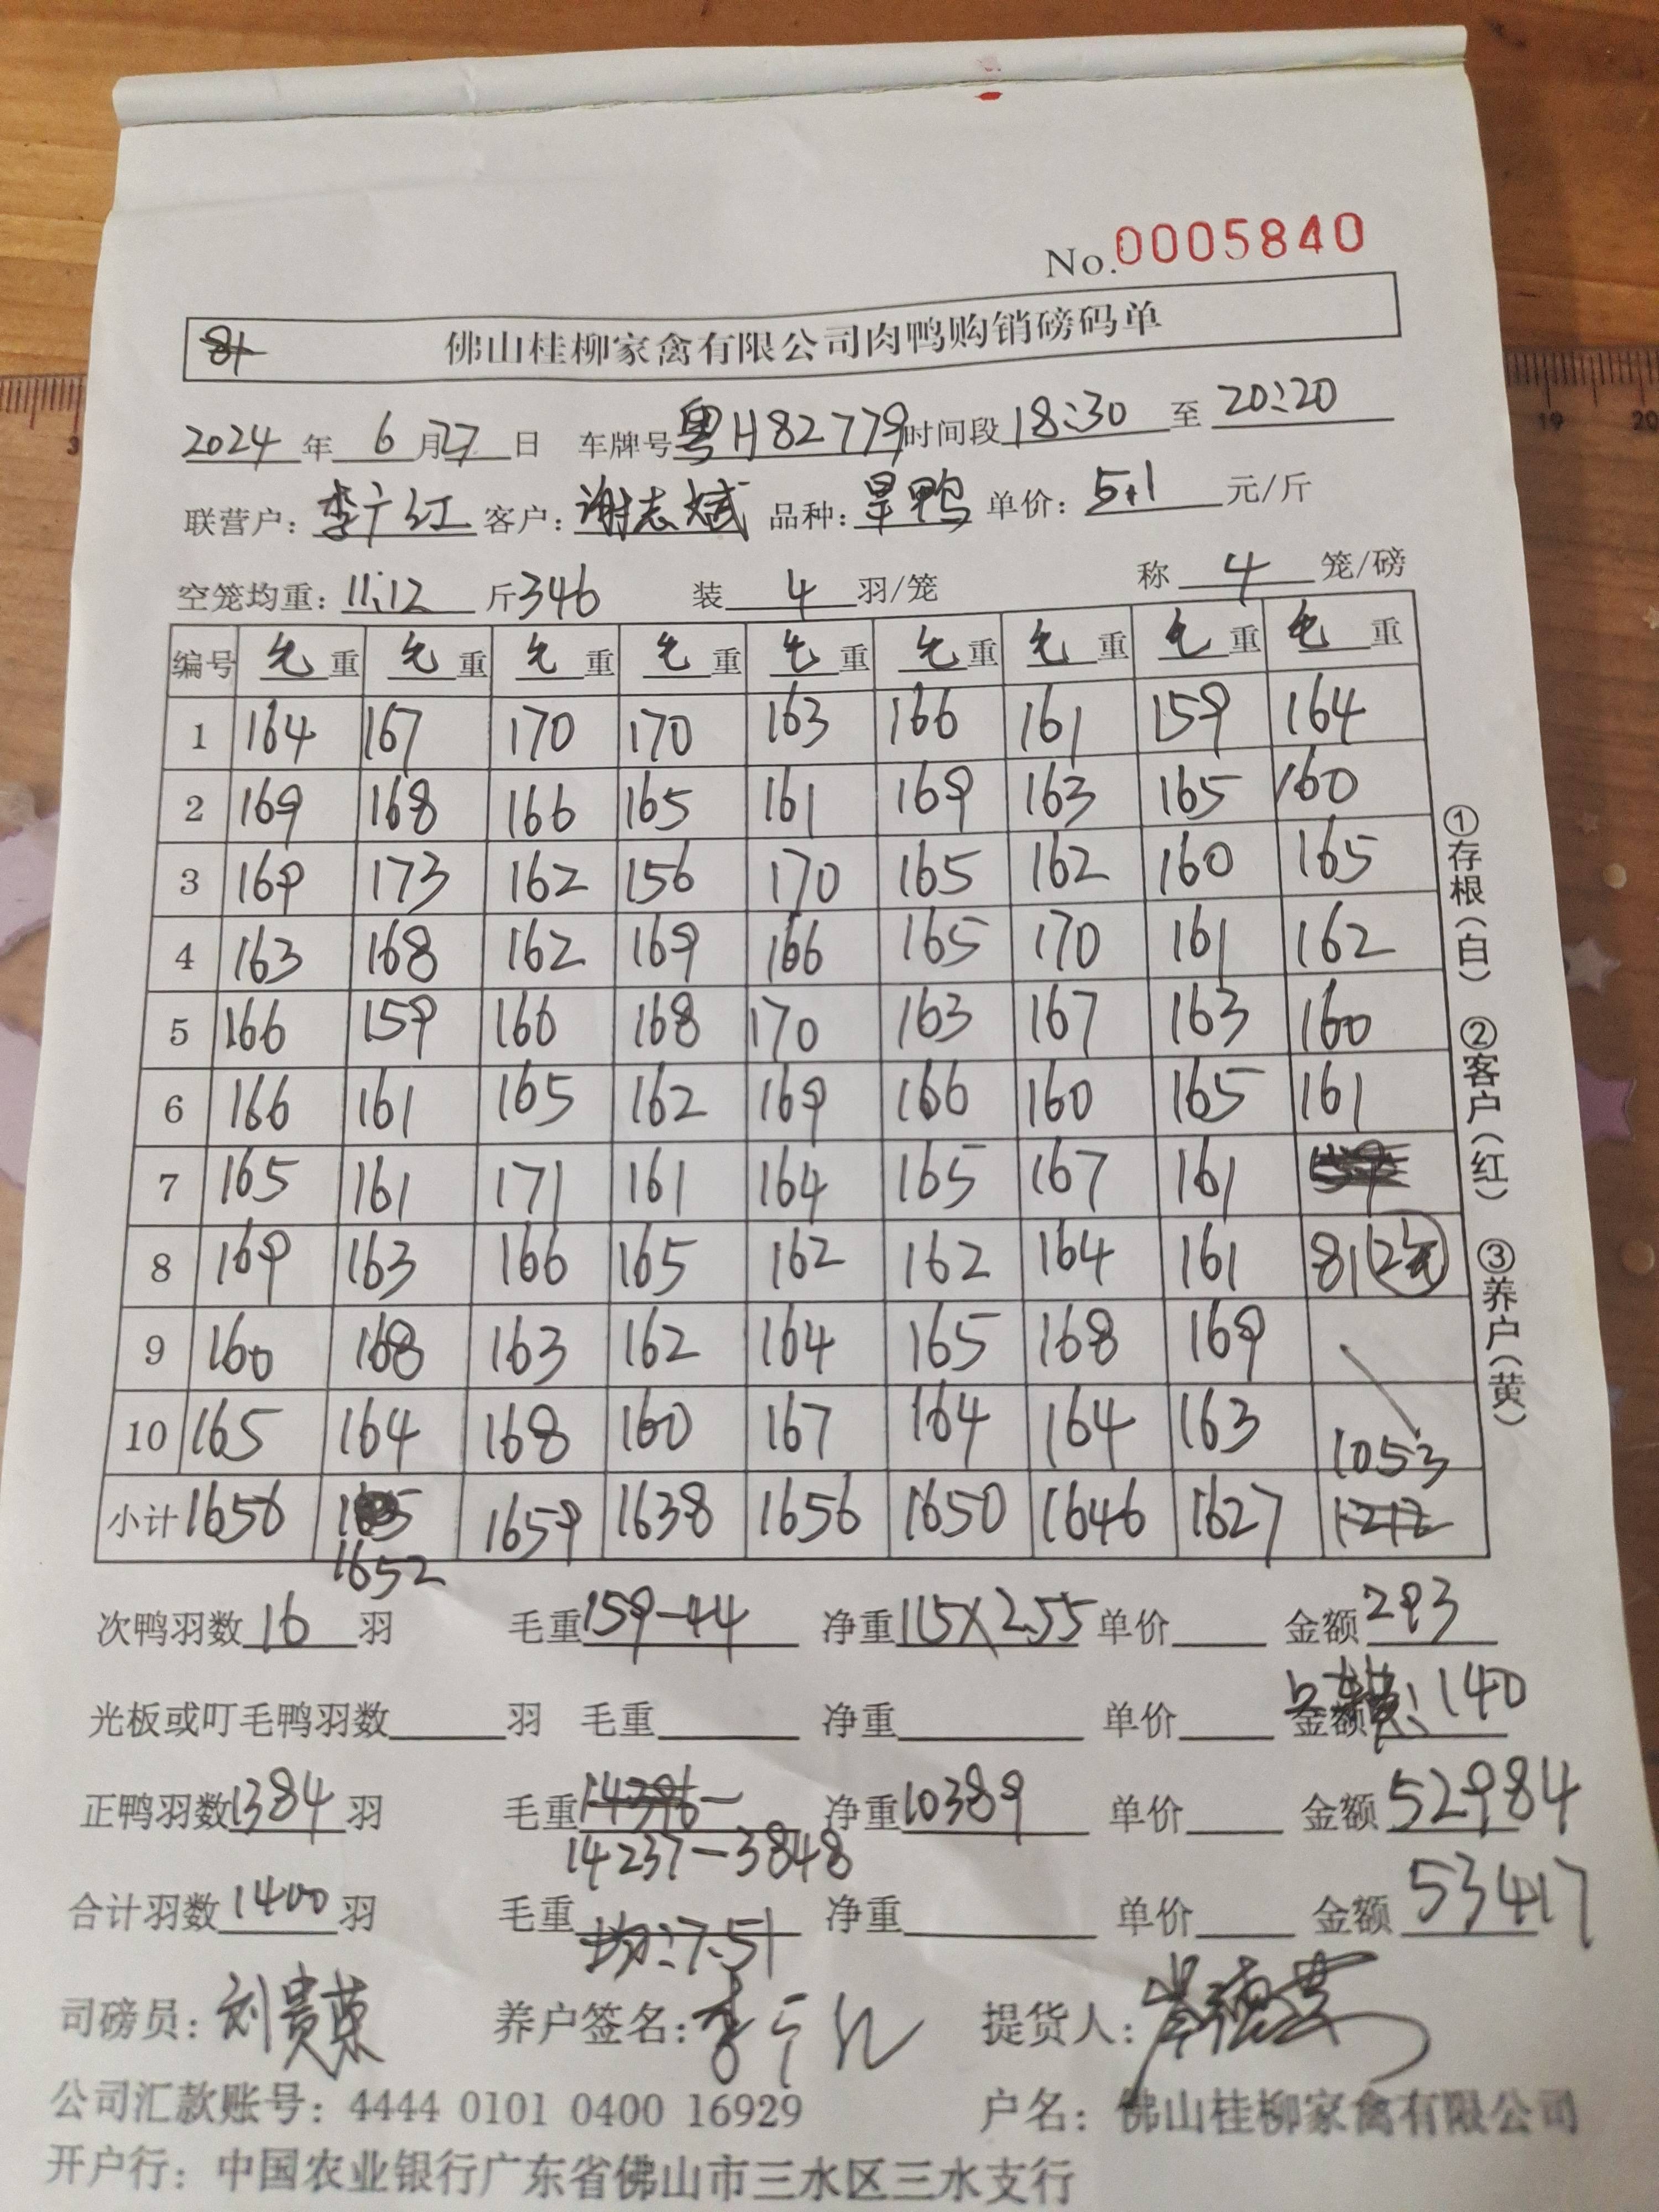 No.0005840
佛山桂柳家禽有限公司肉鸭购销磅码单
2024 年 6 月 27 日 车牌号 粤H82779 时间段 18:30 至 20:20
联营户: 李广红 客户: 谢志斌 品种: 旱鸭 单价: 5.1 元/斤
空笼均重: 11.12 斤 346 装 4 羽/笼 称 4 笼/磅
编号 毛重 毛重 毛重 毛重 毛重 毛重 毛重 毛重 毛重
1 164 167 170 170 163 166 161 159 164
2 169 168 166 165 161 169 163 165 160
3 169 173 162 156 170 165 162 160 165
4 163 168 162 169 166 165 170 161 162
5 166 159 166 168 170 163 167 163 160
6 166 161 165 162 169 166 160 165 161
7 165 161 171 161 164 165 167 161
8 169 163 166 165 162 162 164 161 81
9 160 168 163 162 164 165 168 169
10 165 164 168 160 167 164 164 163 1053
小计 1656 1652 1659 1638 1656 1650 1646 1627
①存根(白) ②客户(红) ③养户(黄)
次鸭羽数 16 羽 毛重 159-44 净重 115×2.55 单价 金额 293
光板或叮毛鸭羽数 羽 毛重 净重 单价 金额 140
正鸭羽数 1384 羽 毛重 14396- 净重 10389 单价 金额 52984
14237-3848
合计羽数 1400 羽 毛重 均:7.51 净重 单价 金额 53417
司磅员: 刘贵荣 养户签名: 李广红 提货人:
公司汇款账号: 4444 0101 0400 16929 户名: 佛山桂柳家禽有限公司
开户行: 中国农业银行广东省佛山市三水区三水支行